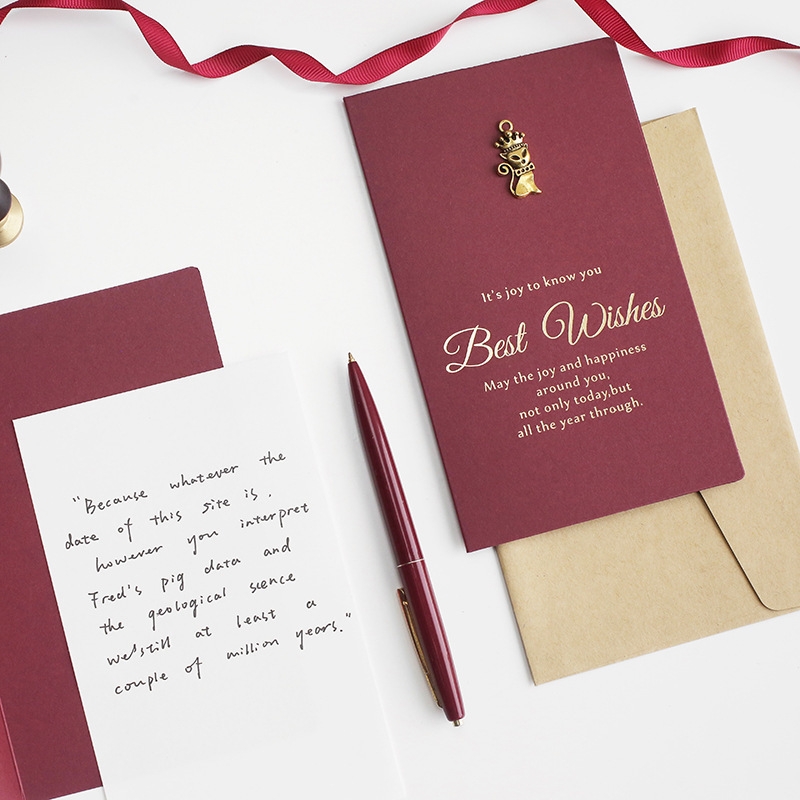 It's joy to know you
Best Wishes
May the joy and happiness
around you,
not only today,but
all the year through.
"Because whatever the
date of this site is,
however you interpret
Fred's pig data and
the geological science
we'still at least a
couple of million years."